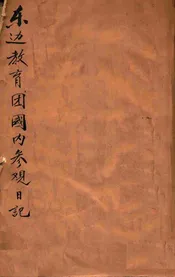 东边教育团國内参观日記